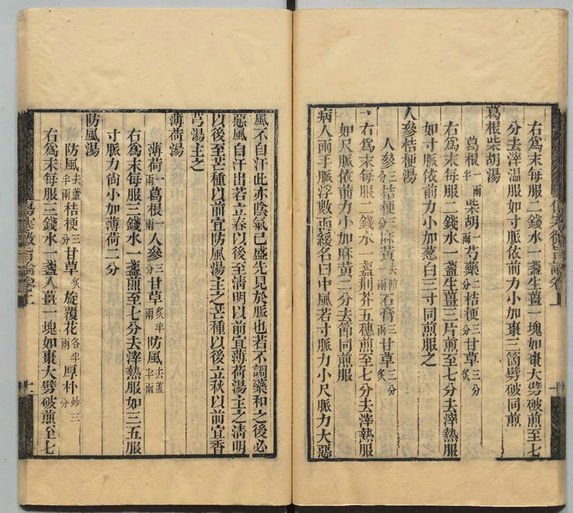 右爲末每服二錢水一盞生薑一塊如棗大劈破煎至七
分去滓温服如寸脈依前力小加棗三箇劈破同煎
葛根柴胡湯
葛根一兩半柴胡一兩芍藥二分桔梗三分甘草三分炙
右爲末每服二錢水一盞生薑三片煎至七分去滓熱服
如寸脈依前力小加葱白三寸同煎服之
人參桔梗湯
人參三分桔梗三分麻黃一兩去節石膏三兩甘草三分炙
右爲末每服二錢水一盞荆芥五穗煎至七分去滓熱服
如尺脈依前力小加麻黃二分去節同煎服
病人兩手脈浮數而緩名曰中風若寸脈力小尺脈力大惡
傷寒微旨論卷上
風不自汗此亦陰氣已盛先見於脈也若不調藥和之後必
惡風自汗出若立春以後至清明以前宜薄荷湯主之清明
以後至芒種以前宜防風湯主之芒種以後至立秋以前宜香
芎湯主之
薄荷湯
薄荷一兩葛根半兩人參三分甘草半兩炙防風去蘆半兩
右爲末每服三錢水一盞煎至七分去滓熱服如三五服
寸脈力尙小加薄荷二分
防風湯
防風去蘆半兩桔梗三分甘草半兩炙旋覆花各半兩厚朴三分
右爲末每服三錢水一盞入薑一塊如棗大劈破煎至七